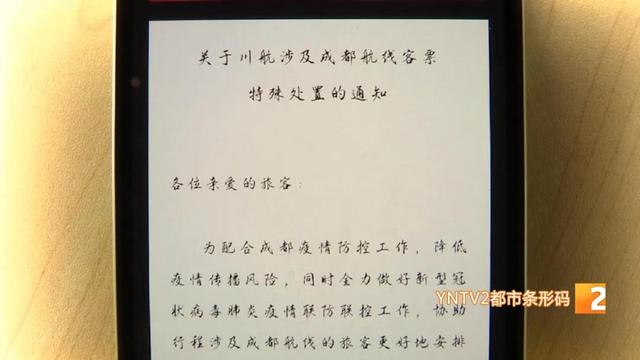 关于川航涉及成都航线客票
特殊处置的通知
各位亲爱的旅客:
为配合成都疫情防控工作,降低
疫情传播风险,同时全力做好新型冠
状病毒肺炎疫情联防联控工作,协助
行程涉及成都航线的旅客更好地安排
YNTV2都市条形码 2